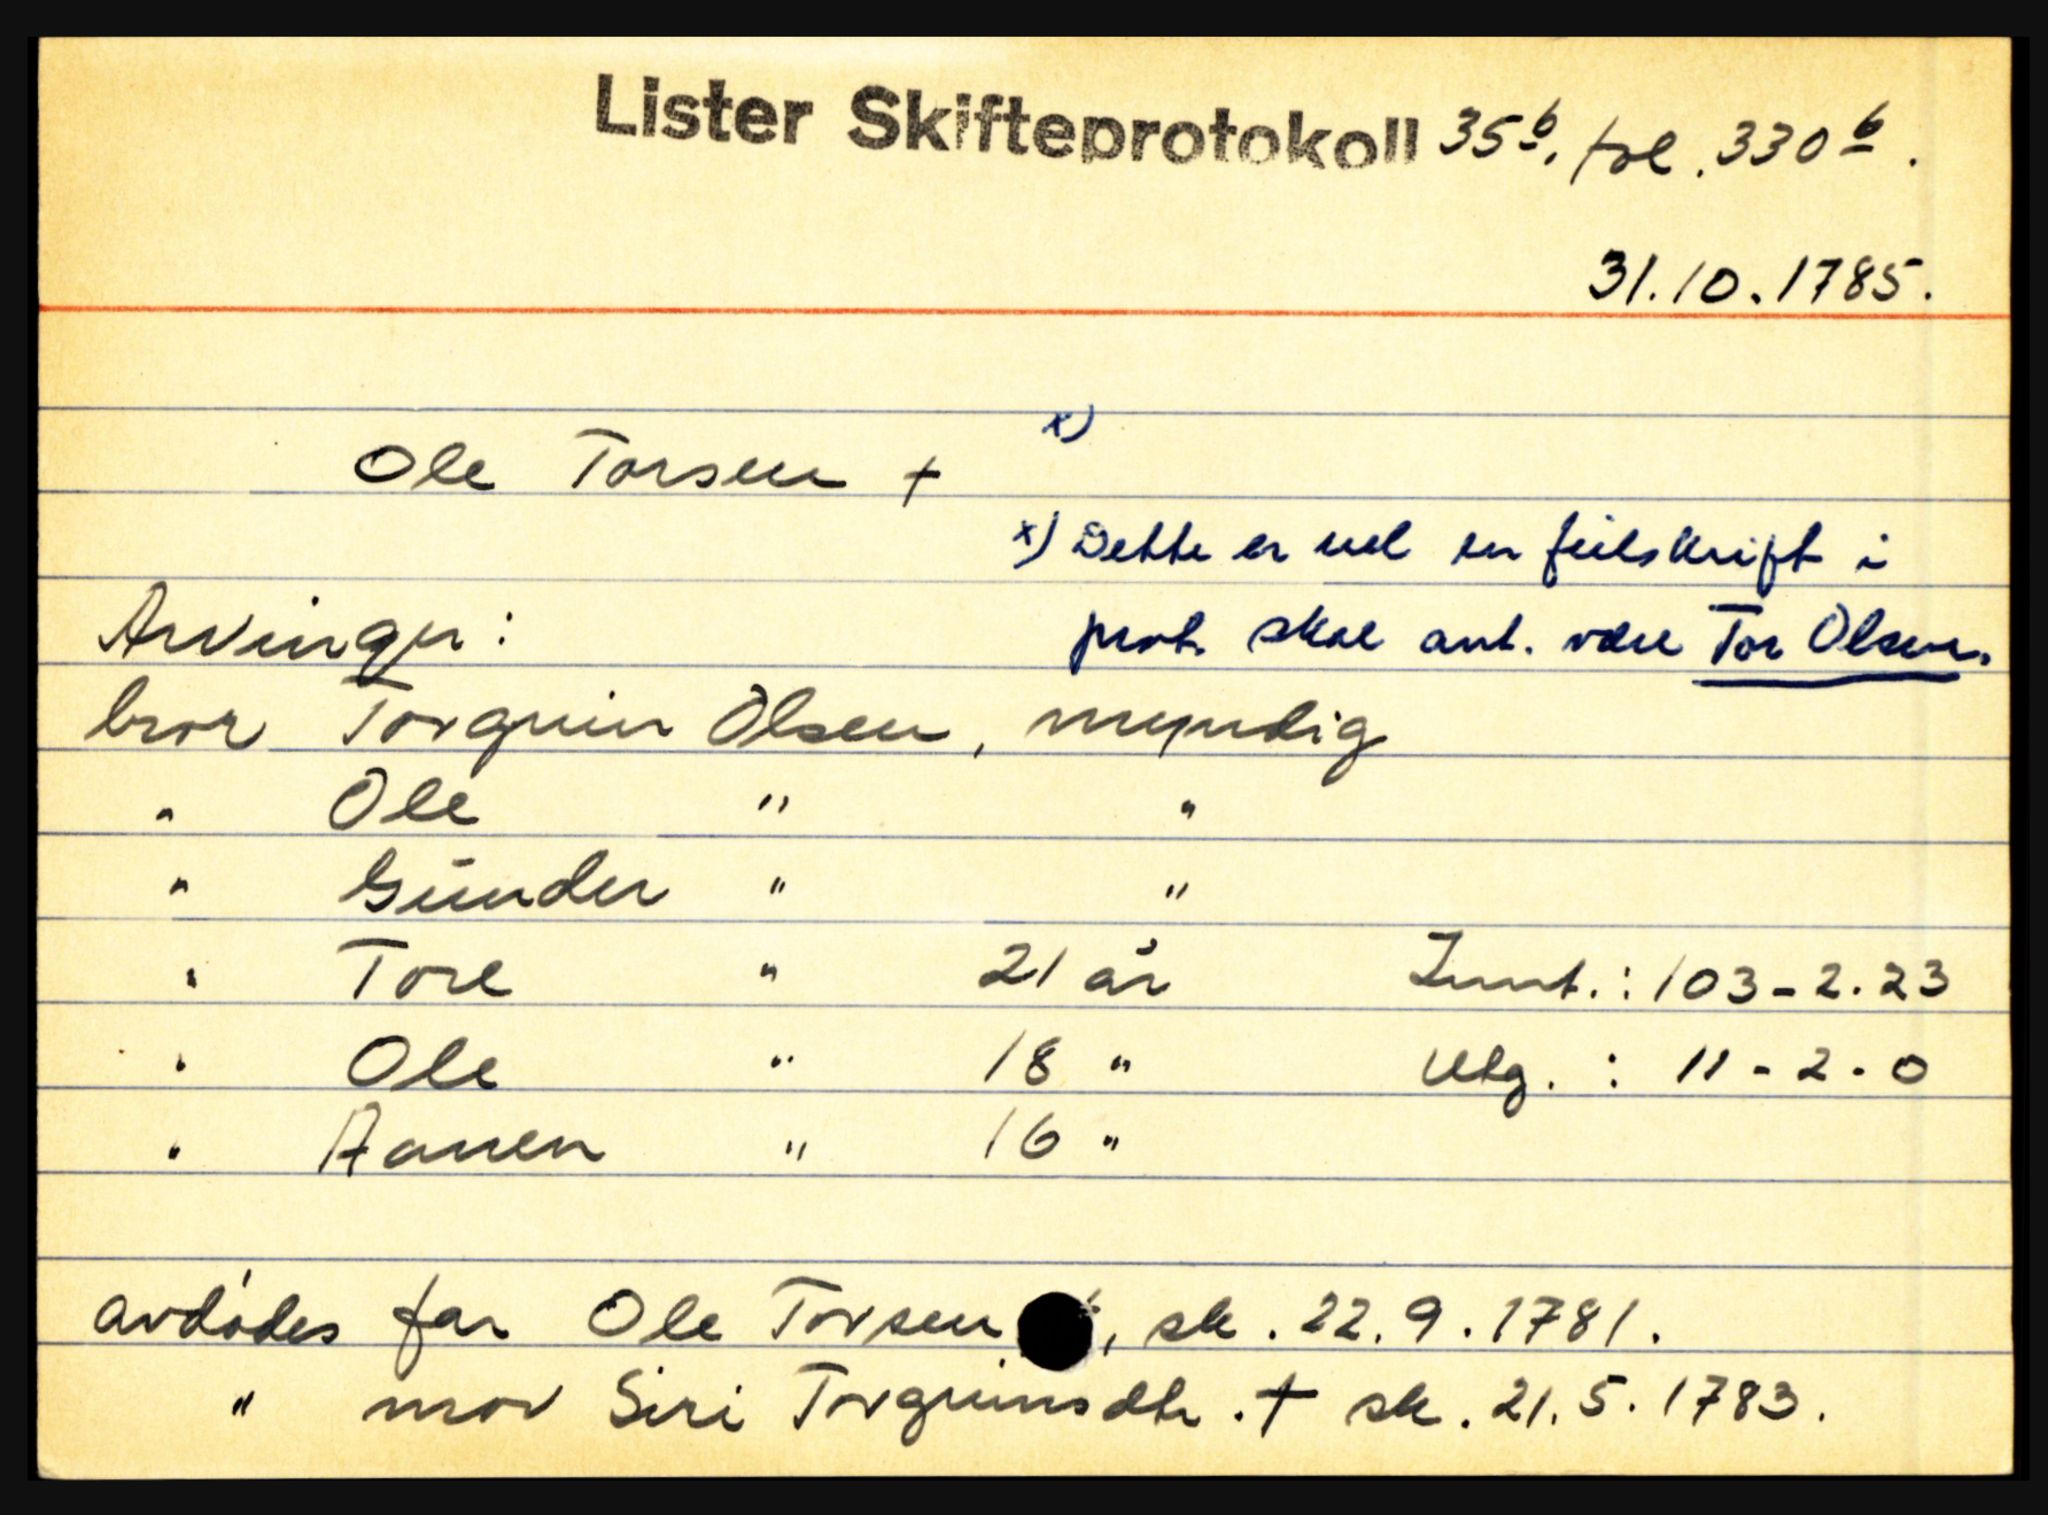 Lister Skifteprotokoll 35b, fol. 330b.
31.10.1785.
Ole Torsen + x)
x) Dette er vel en feilskrift i
prot. skal ant. være Tor Olsen.
Arvinger:
bror Torgrim Olsen, myndig
" Ole " "
" Gunder " "
" Tore " 21 år Innt.: 103-2.23
" Ole " 18 " Utg. : 11-2-0
" Aanen " 16 "
avdødes far Ole Torsen +, sk. 22.9.1781.
" mor Siri Torgrimsdtr. + sk. 21.5.1783.